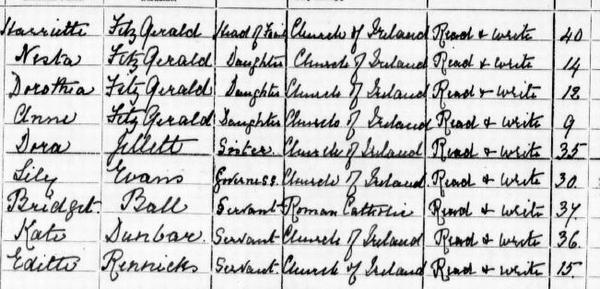 Harriette FitzGerald Head of Fam Church of Ireland Read & write 40
Nesta FitzGerald Daughter Church of Ireland Read & write 14
Dorothea FitzGerald Daughter Church of Ireland Read & write 12
Anne FitzGerald Daughter Church of Ireland Read & write 9
Dora Jellett Sister Church of Ireland Read & write 35
Lily Evans Governess Church of Ireland Read & write 30
Bridget Ball Servant Roman Catholic Read & write 37
Kate Dunbar Servant Church of Ireland Read & write 36
Edith Rennicks Servant Church of Ireland Read & write 15